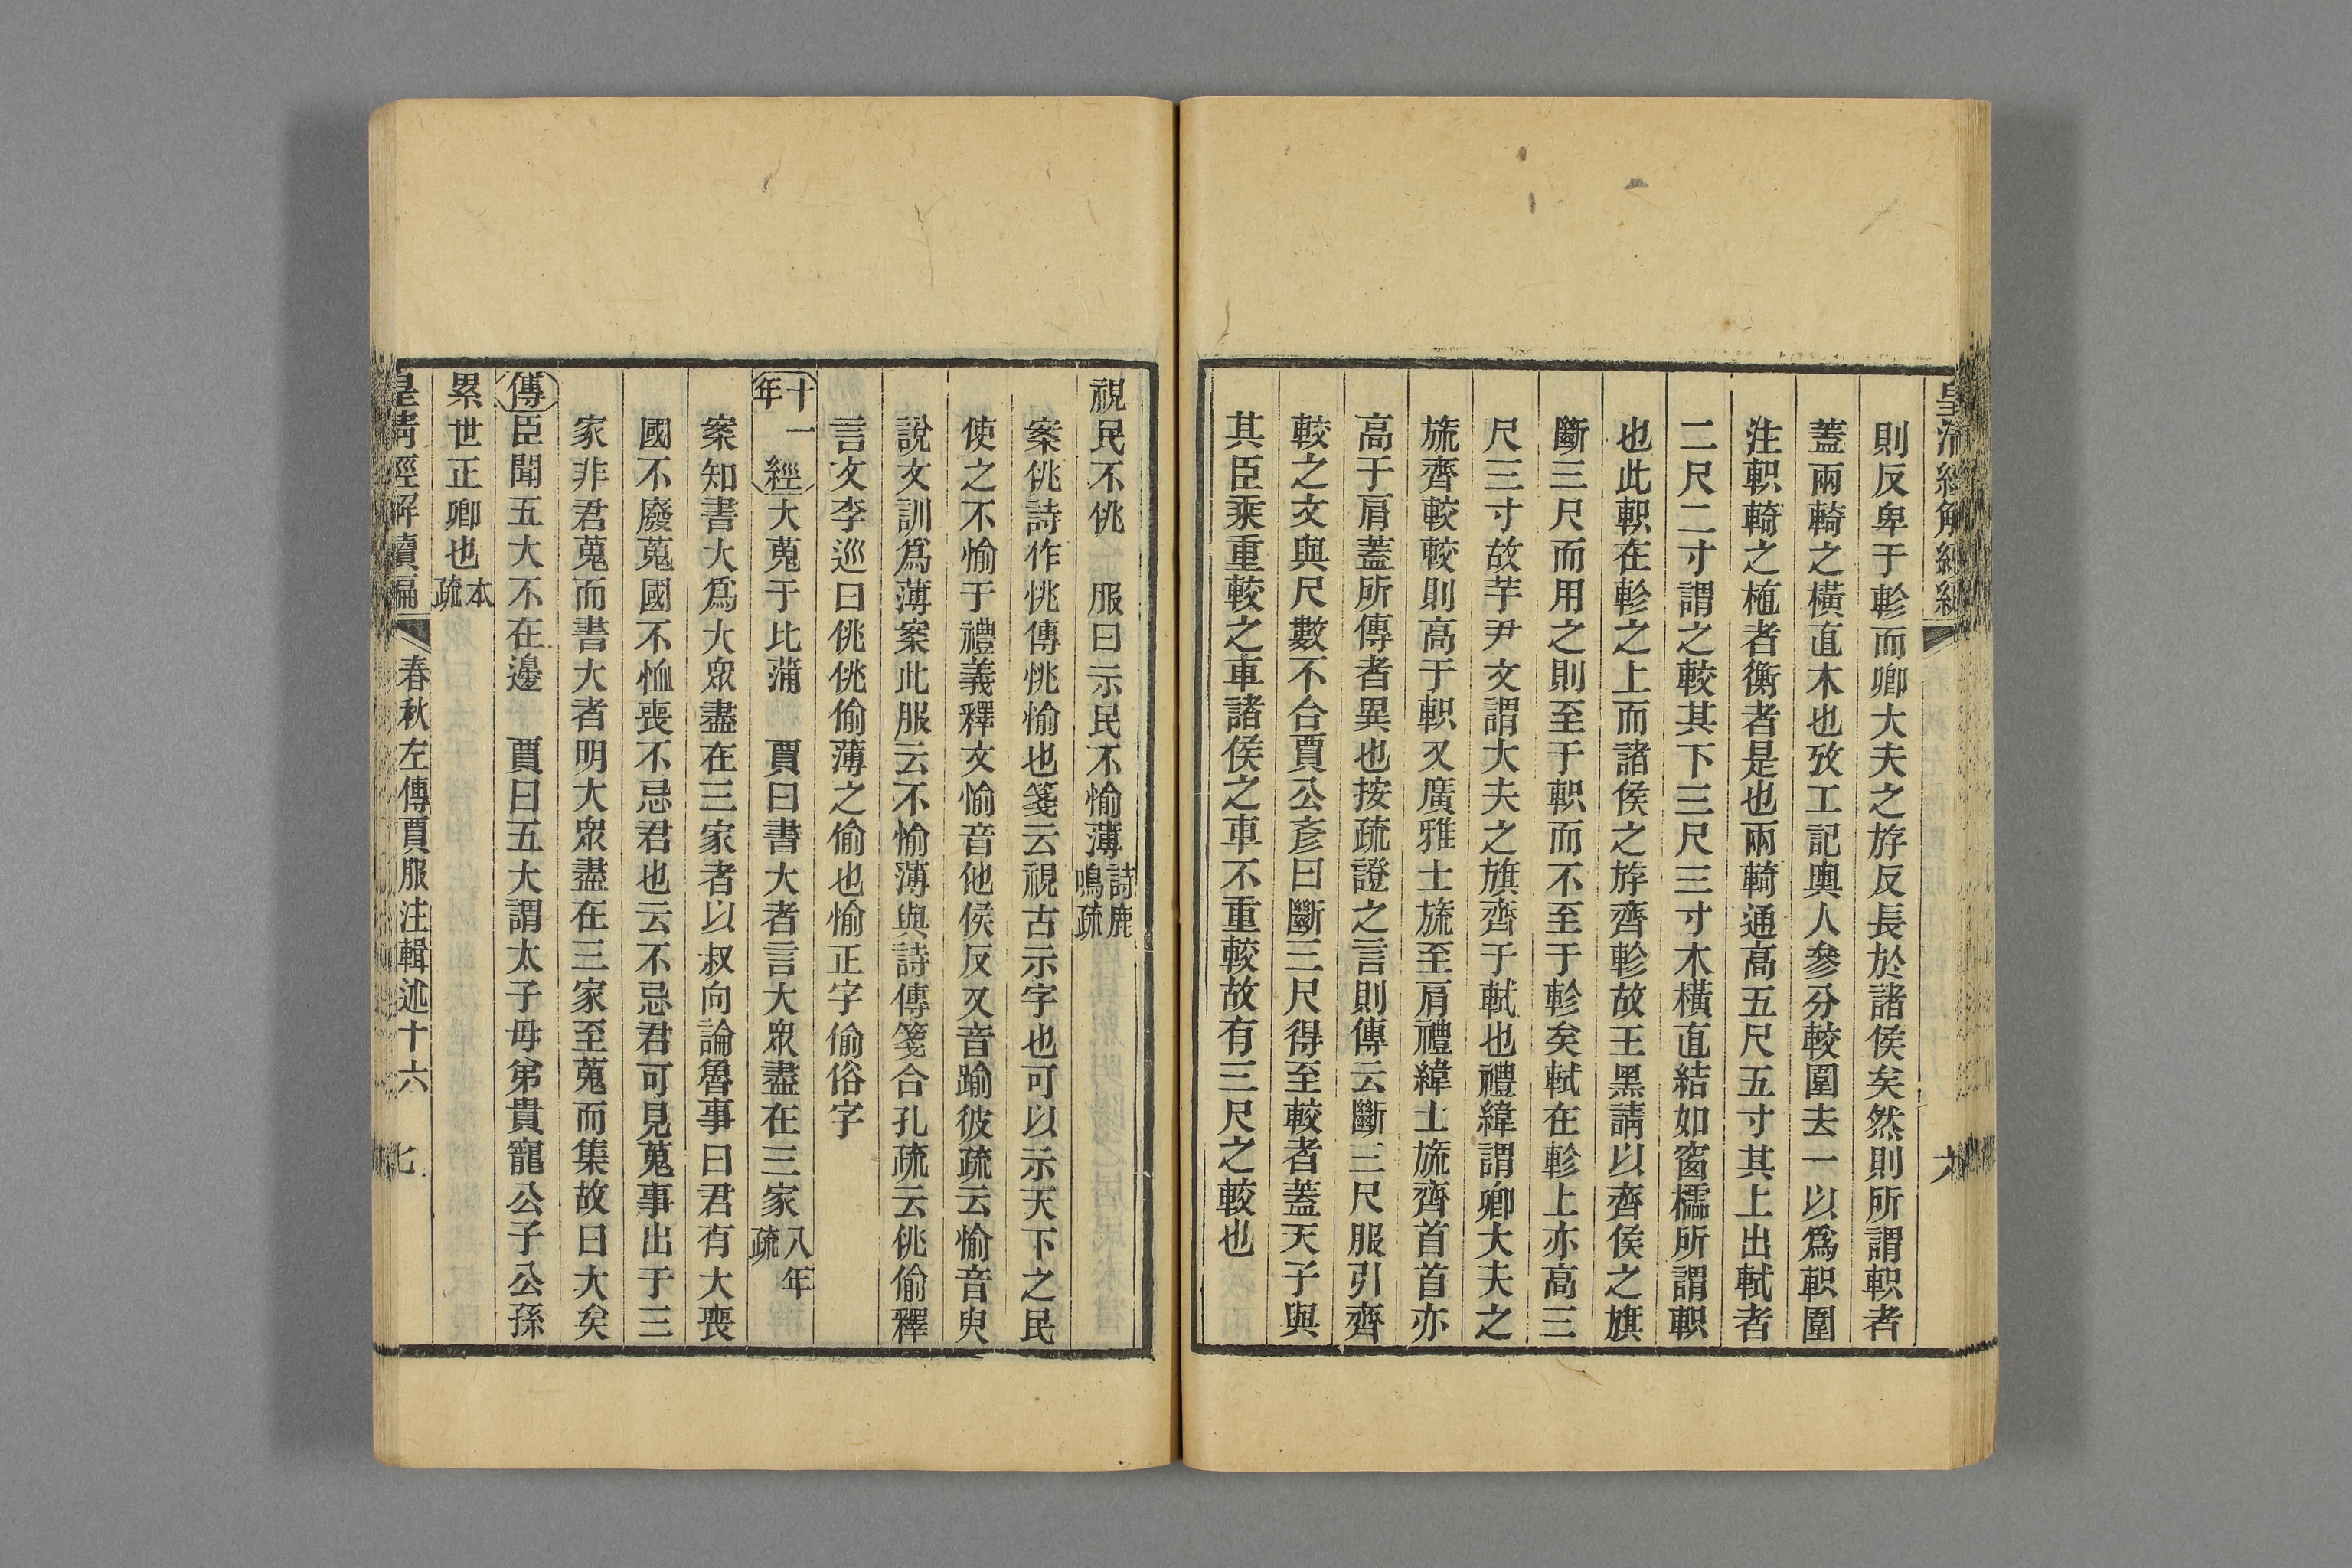 則反卑于軫而卿大夫之斿反長於諸侯矣然則所謂軹者
蓋兩輢之橫直木也攷工記輿人參分較圍去一以爲軹圍
注軹輢之植者衡者是也兩輢通高五尺五寸其上出軾者
二尺二寸謂之較其下三尺三寸木橫直結如窗櫺所謂軹
也此軹在軫之上而諸侯之斿齊軫故王黑請以齊侯之旗
斷三尺而用之則至于軹而不至于軫矣軾在軫上亦高三
尺三寸故芋尹文謂大夫之旗齊于軾也禮緯謂卿大夫之
旒齊較較則高于軹又廣雅士旒至肩禮緯士旒齊首首亦
高于肩蓋所傳者異也按疏證之言則傳云斷三尺服引齊
較之文與尺數不合賈公彥曰斷三尺得至較者蓋天子與
其臣乘重較之車諸侯之車不重較故有三尺之較也
視民不佻 服曰示民不愉薄詩鹿鳴疏
案佻詩作恌傳恌愉也箋云視古示字也可以示天下之民
使之不愉于禮義釋文愉音他侯反又音踰彼疏云愉音臾
說文訓爲薄案此服云不愉薄與詩傳箋合孔疏云佻偷釋
言文李巡曰佻佻偷薄之偷也愉正字偷俗字
十一年經大蒐于比蒲 賈曰書大者言大眾盡在三家八年疏
案知書大爲大眾盡在三家者以叔向論魯事曰君有大喪
國不廢蒐國不恤喪不忌君也云不忌君可見蒐事出于三
家非君蒐而書大者明大眾盡在三家至蒐而集故曰大矣
傳臣聞五大不在邊 賈曰五大謂太子母弟貴寵公子公孫
累世正卿也本疏
皇清經解續編 春秋左傳賈服注輯述十六 七